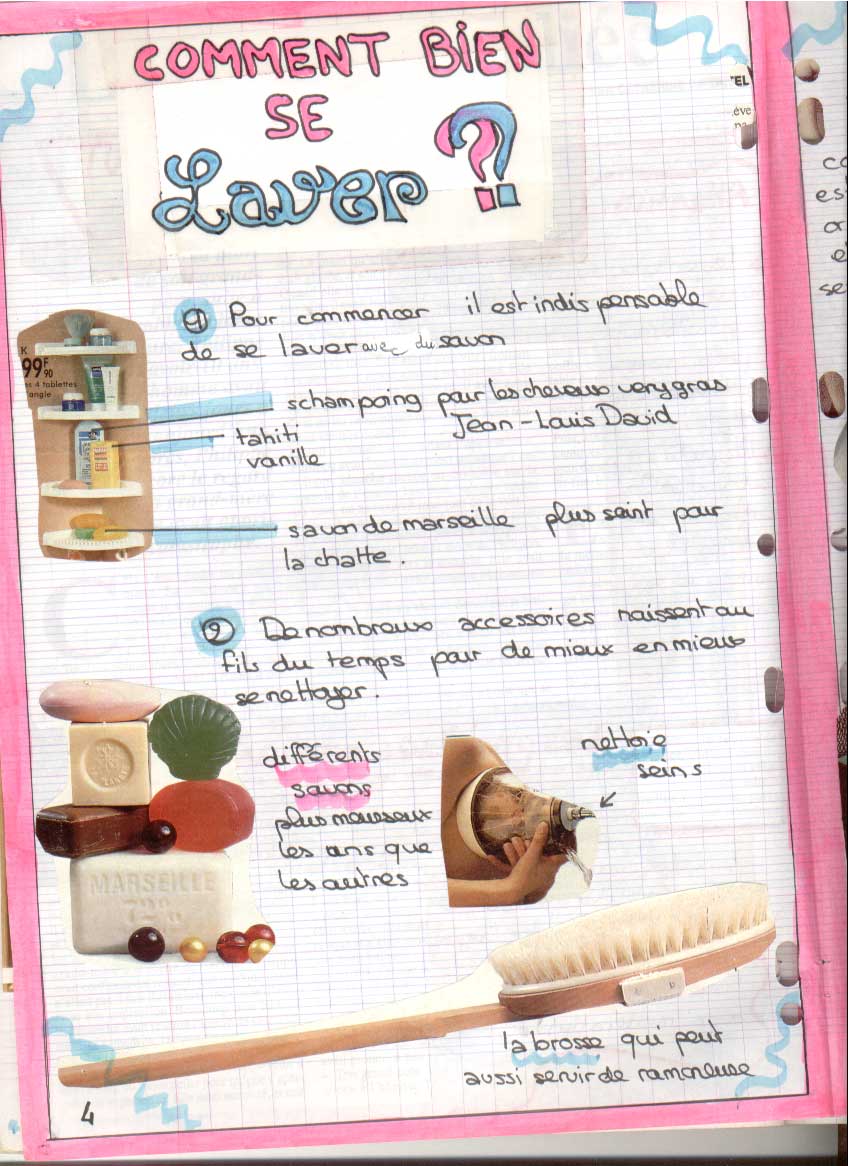 COMMENT BIEN
SE
Laver ?
"EL
éve
1 Pour commencer il est indispensable
de se laver avec du savon
K
99F
90
es 4 tablettes
angle
schampoing pour les cheveux very gras
Jean-Louis David
tahiti
vanille
savon de marseille plus saint pour
la chatte.
2 De nombreux accessoires naissent au
fils du temps pour de mieux en mieux
se nettoyer.
différents
savons
plus mousseux
les uns que
les autres
nettoie
seins
MARSEILLE
72%
la brosse qui peut
aussi servir de ramoneuse
4